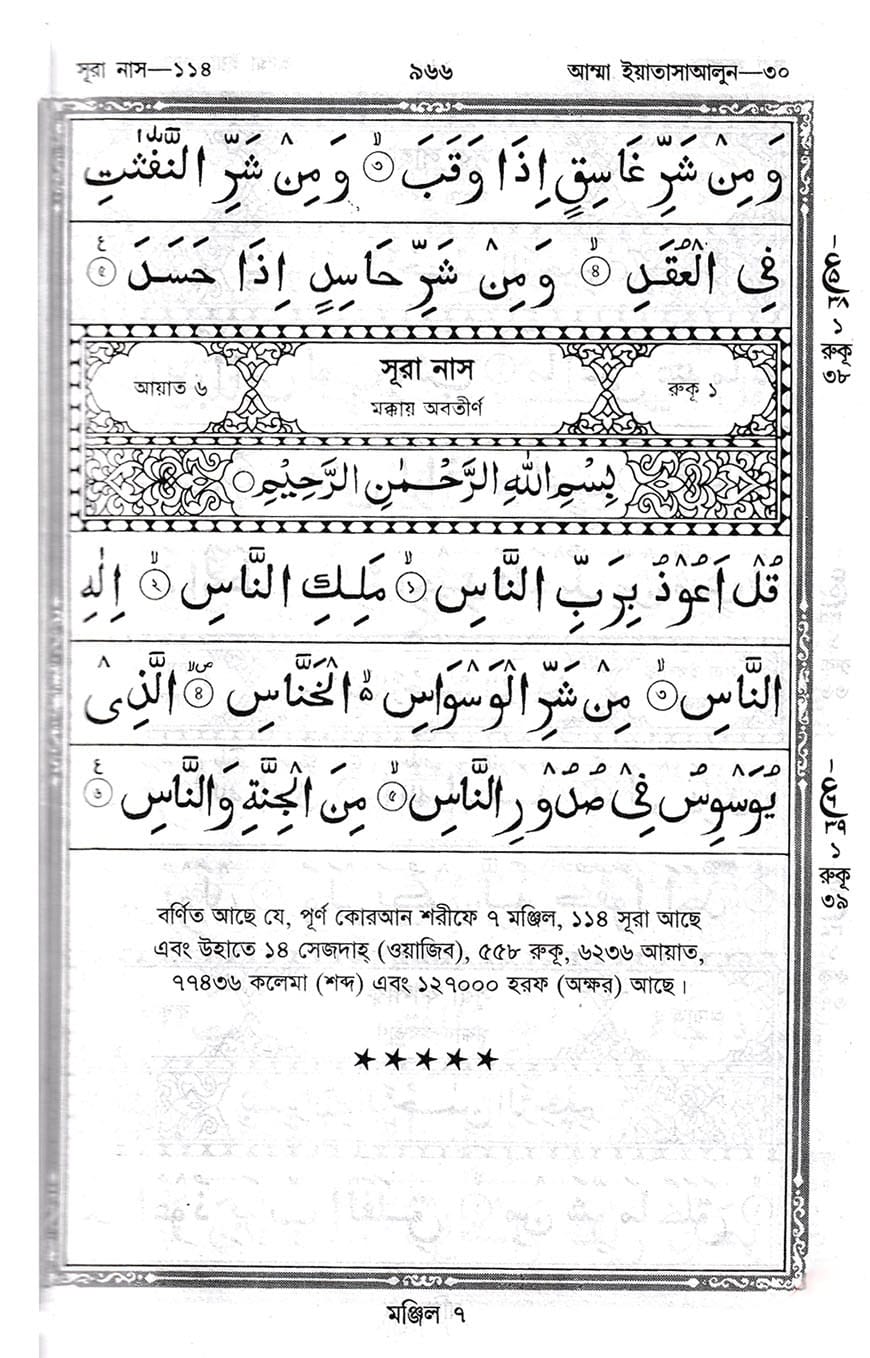 সূরা নাস—১১৪ ৯৬৬ আম্মা ইয়াতাসাআলুন—৩০
وَمِنْ شَرِّ غَاسِقٍ اِذَا وَقَبَ ۙ۝٣ وَمِنْ شَرِّ النَّفّٰثٰتِ
فِى الْعُقَدِ ۙ۝٤ وَمِنْ شَرِّ حَاسِدٍ اِذَا حَسَدَ ۝٥
১
রুকূ
৩৮
সূরা নাস
আয়াত ৬ মক্কায় অবতীর্ণ রুকূ ১
بِسْمِ اللهِ الرَّحْمٰنِ الرَّحِيْمِ
قُلْ اَعُوْذُ بِرَبِّ النَّاسِ ۙ۝١ مَلِكِ النَّاسِ ۙ۝٢ اِلٰهِ
النَّاسِ ۙ۝٣ مِنْ شَرِّ الْوَسْوَاسِ ۙ۬ الْخَنَّاسِ ۝٤ الَّذِىْ
يُوَسْوِسُ فِىْ صُدُوْرِ النَّاسِ ۙ۝٥ مِنَ الْجِنَّةِ وَالنَّاسِ ۝٦
১
রুকূ
৩৯
বর্ণিত আছে যে, পূর্ণ কোরআন শরীফে ৭ মঞ্জিল, ১১৪ সূরা আছে
এবং উহাতে ১৪ সেজদাহ্ (ওয়াজিব), ৫৫৮ রুকূ, ৬২৩৬ আয়াত,
৭৭৪৩৬ কলেমা (শব্দ) এবং ১২৭০০০ হরফ (অক্ষর) আছে।
★★★★★
মঞ্জিল ৭